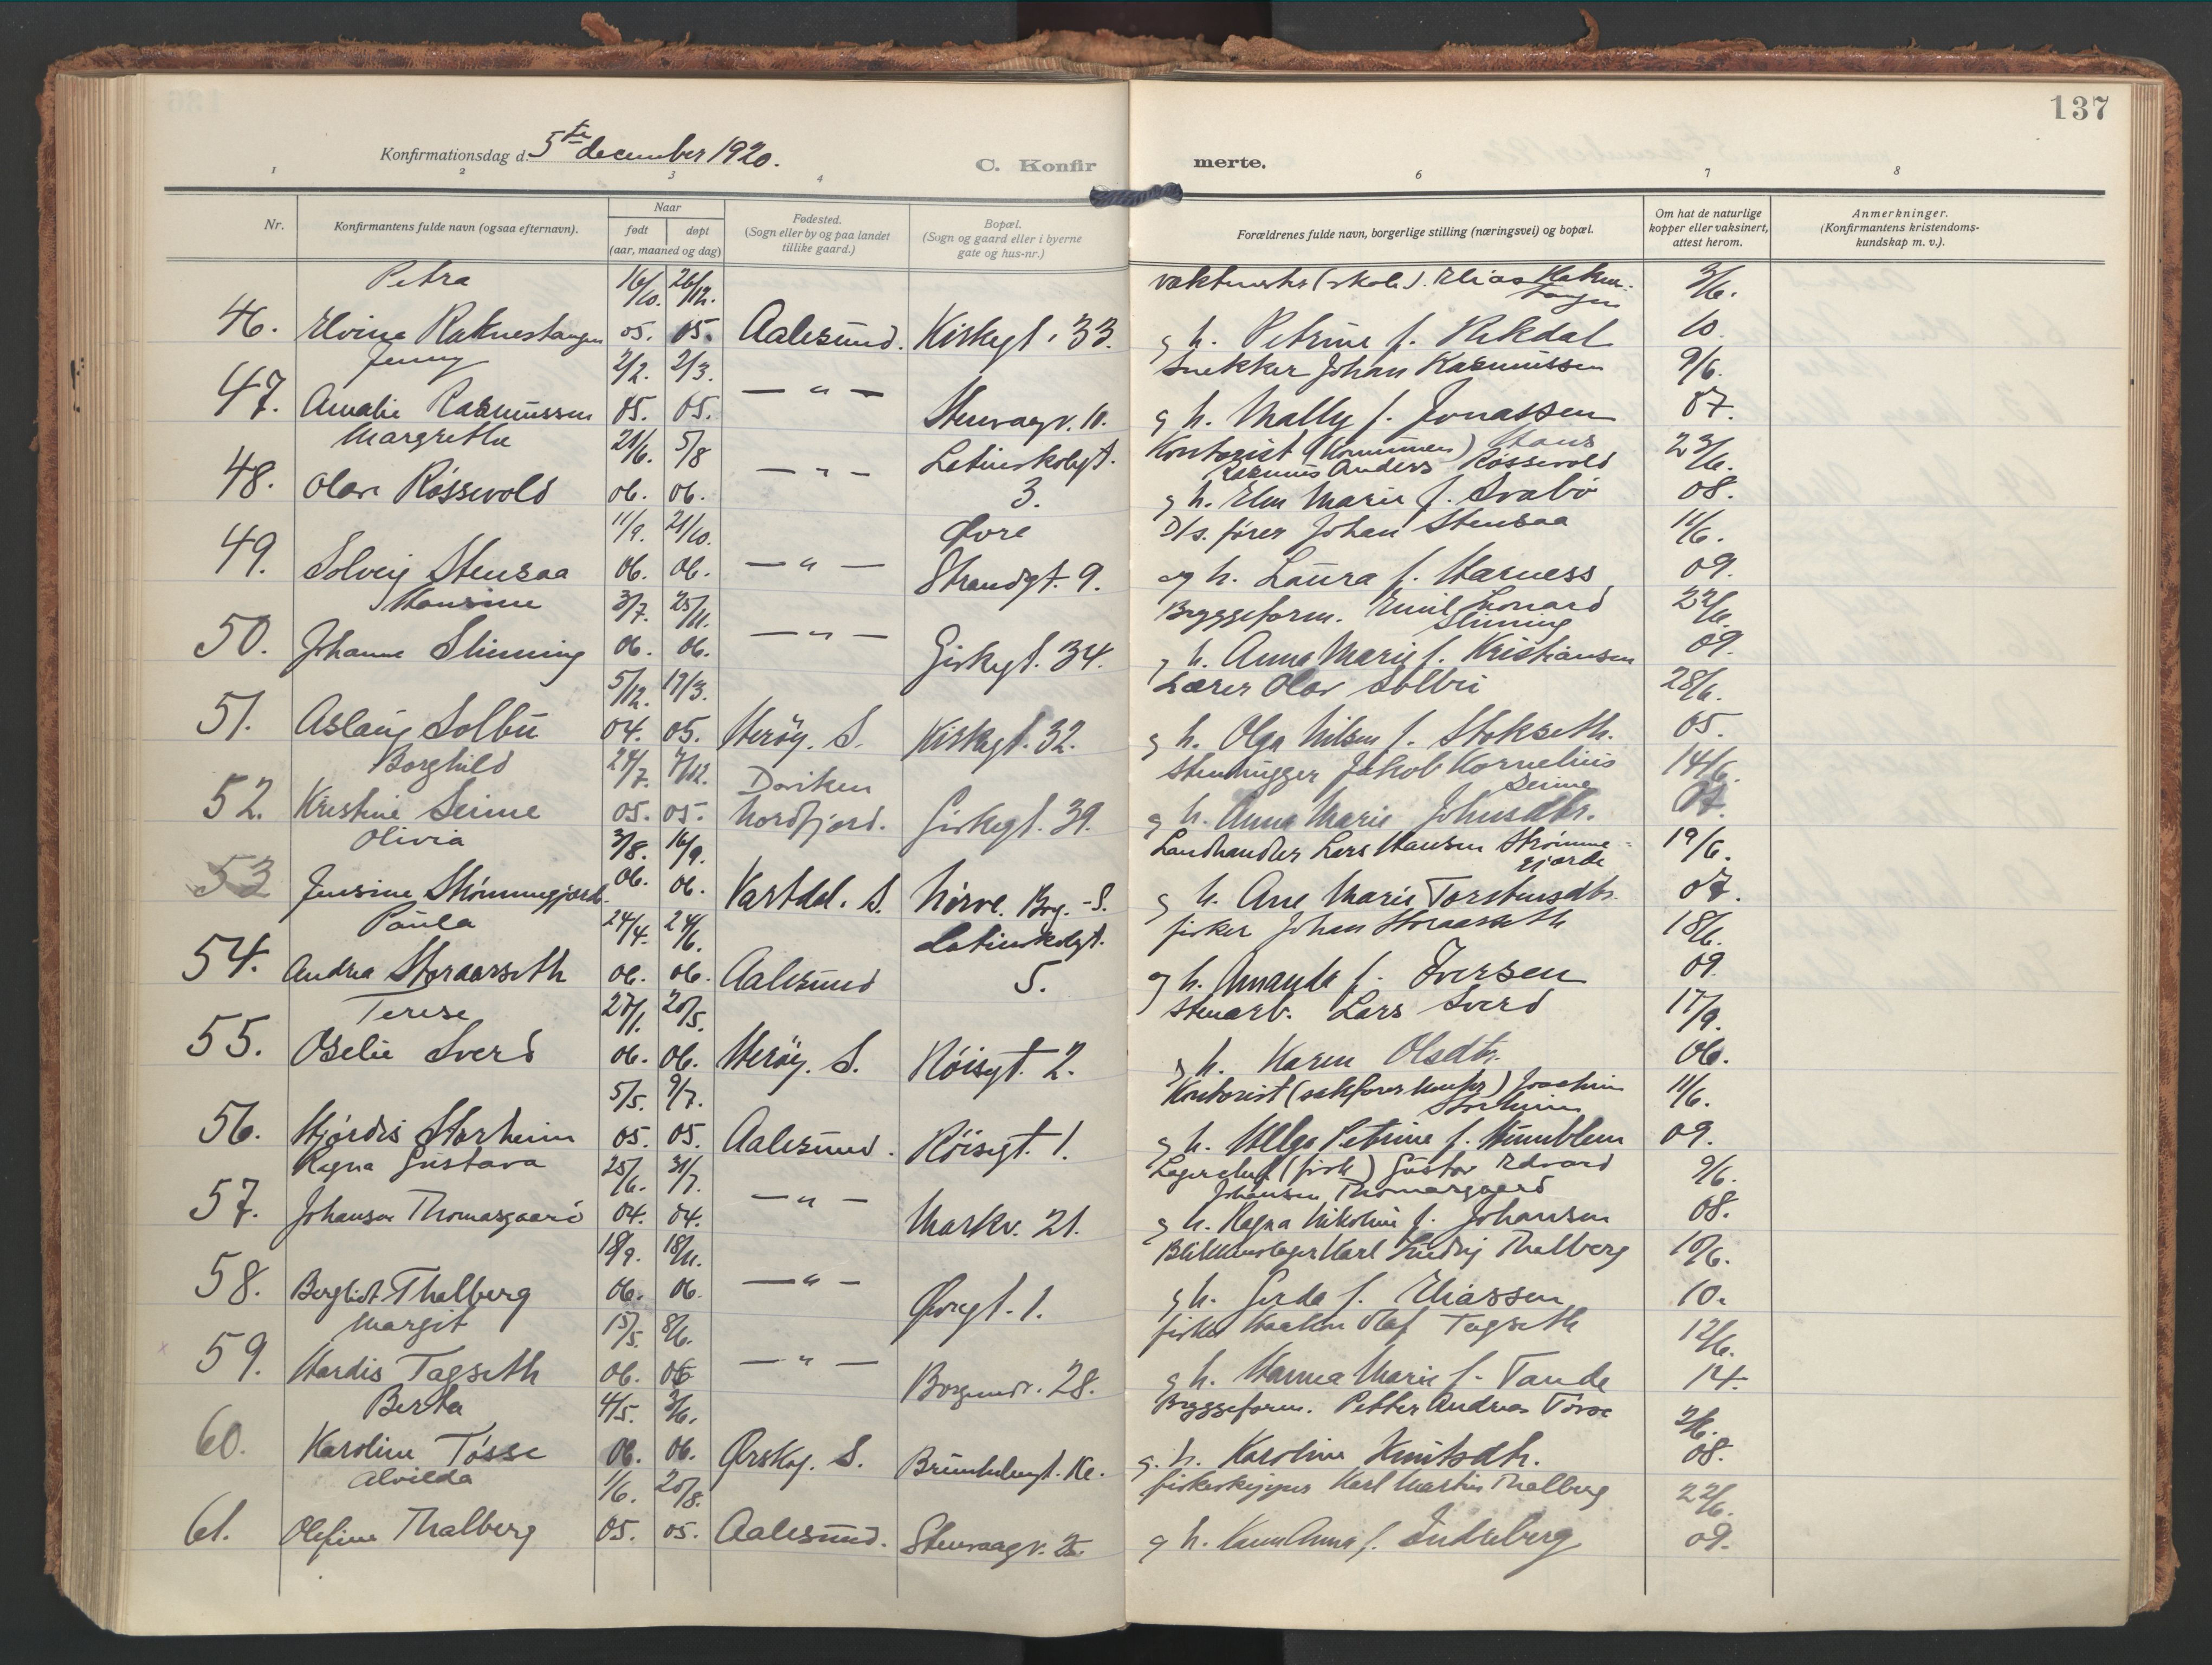 137
Konfirmationsdag d. 5te december 1920.
C. Konfir
merte.
1 2 3 4 6 7 8
Nr.
Konfirmantens fulde navn (ogsaa efternavn).
Naar
født døpt
(aar, maaned og dag)
Fødested.
(Sogn eller by og paa landet
tillike gaard.)
Bopæl.
(Sogn og gaard eller i byerne
gate og hus-nr.)
Forældrenes fulde navn, borgerlige stilling (næringsvei) og bopæl.
Om hat de naturlige
kopper eller vaksinert,
attest herom.
Anmerkninger.
(Konfirmantens kristendoms-
kundskap m. v.).
Petra 16/10. 26/12. vaktmester (skole). Elias Raknes- 3/6.
tangen
46. Elvine Raknestangen 05. 05. Aalesund. Kirkegt. 33. g h. Petrine f. Rekdal 10.
Jenny 2/2. 2/3. Snekker Johan Rasmussen 9/6.
47. Amalie Rasmussen 05. 05. — " — Stenvaagv. 10. g h. Mally f. Jonassen 07.
Margrethe 21/6. 5/8 — " — Latinskolegt. Kontorist (Kommunen) Hans 23/6.
Rasmus Anders Røssevold
48. Olave Røssevold 06. 06. 3. g h. Elen Marie f. Svabø 08.
11/9. 21/10. Øvre D/s. fører Johan Stensaa 11/6.
49. Solveig Stensaa 06. 06. — " — Strandgt. 9. og h. Laura f. Harness 09.
Hansine 3/7. 25/11. Bryggeform. Emil Leonard 22/6.
Slinning
50. Johanne Slinning 06. 06. — " — Girkegt. 34. g h. Anna Marie f. Kristiansen 09.
5/12. 17/3. Lærer Olav Solbu 28/6.
51. Aslaug Solbu 04. 05. Herøy. S. Kirkegt. 32. g h. Olga Nilsen f. Stokseth. 05.
Borghild 24/7. 7/12. Daviken Stenhugger Jakob Kornelius 14/6.
Seime
52. Kristine Seime 05. 05. Nordfjord. Girkegt. 39. g h. Anna Marie Johnsdtr. 07.
Olivia 3/8. 16/9. Landhandler Lars Hansen Strømme- 19/6.
gjerde
53 Jensine Strømmegjerde. 06. 06. Vartdal. S. Nørve. Borg. -S. g h. Ane Marie Torstensdtr. 07.
Paula 24/4. 24/6. Latinskolegt. fisker Johan Storaaseth 18/6.
54. Andrea Storaaseth 06. 06. Aalesund 5. g h. Amanda f. Iversen 09.
Terese 27/1. 20/5. Stenarb. Lars Sverd 17/9.
55. Oselie Sverd 06. 06. Herøy. S. Røisegt. 2. g h. Karen Olsdtr. 06.
5/5. 9/7. Kontorist (sakførerkontor) Joachim 11/6.
Storheim
56. Hjørdis Storheim 05. 05. Aalesund. Røisegt. 1. g h. Helga Petrine f. Humblen 09.
Ragna Gustava 25/6. 31/7. Lagerchef (fisk) Gustav Edvard 9/6.
Johansen Thomasgaard
57. Johansen Thomasgaard 04. 04. — " — Markv. 21. g h. Ragna Nikoline f. Johansen 08.
18/9. 18/11. Blikkenslager Karl Fredrig Thalberg 10/6.
58. Bergliot Thalberg 06. 06. — " — Øvregt. 1. g h. Gerda f. Eliassen 10.
Margit 15/5. 8/6. fisker Haakon Olaf Tagseth 12/6.
59. Hardis Tagseth 06. 06 — " — Borgundv. 28. g h. Hanna Marie f. Tande 14.
Berta 4/5. 3/6. Bryggeform. Petter Andreas Tøsse 2/6.
60. Karoline Tøsse 06. 06. Ørskog. S. g. h. Karoline Knutsdtr. 08.
Alvilda 1/6. 20/8. fiskeskipper Karl Martin Thalberg 22/6.
61. Olefine Thalberg 05. 05. Aalesund. Stenvaagv. 25. g h. Karen Anna f. Indreberg 09.